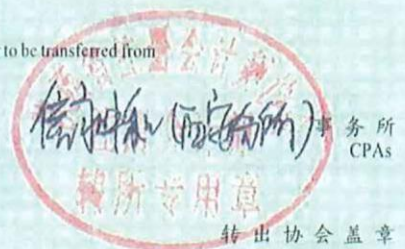 to be transferred from
信永中和(西安分所)事务所
CPAs
转所专用章
转出协会盖章